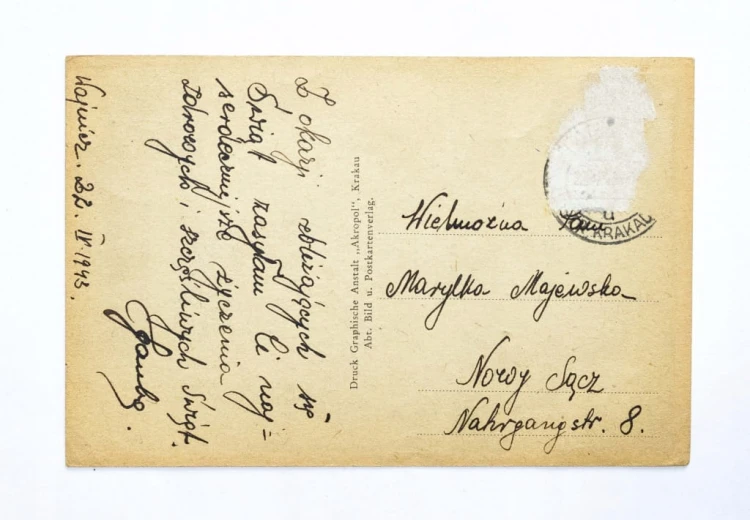 Z okazji zbliżających się
Świąt zasyłam Ci naj=
serdeczniejsze życzenia
zdrowych i szczęśliwych Świąt.
Wojnicz. 22. IV. 1943.
Druck Graphische Anstalt „Akropol“, Krakau
Abt. Bild u. Postkartenverlag.
KRAKAU
Wielmożna Pani
Marylka Majewska
Nowy Sącz
Nahrgangstr. 8.